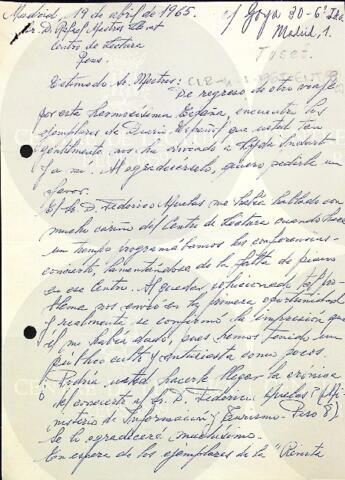 Madrid, 19 de abril de 1965. c/ Goya 30-6º Izq.
Sr. D. Rafael Mestres Madrid, 1.
Centro de Lectura
Reus.
Estimado Sr. Mestres:
De regreso de otro viaje
por esta hermosísima España, encuentro los
ejemplares de "Diario Español" que usted tan
gentilmente nos ha enviado a
y a mí. Al agradecérselo, quiero pedirle un
favor:
El Sr. D. Federico Muelas me había hablado con
mucho cariño del Centro de Lectura cuando hace
un tiempo programábamos las conferencias-
concierto, lamentándose de la falta de piano
en ese Centro. Al quedar solucionado tal pro-
blema nos envió en la primera oportunidad
y realmente se confirmó la impresión que
él me había dado, pues hemos tenido un
público culto y entusiasta como pocos.
Podría usted hacerle llegar la crónica
del concierto al Sr. D. Federico Muelas? (Mi-
nisterio de Información y Turismo - Piso 8)
Se lo agradeceré muchísimo.
En espera de los ejemplares de la "Revista